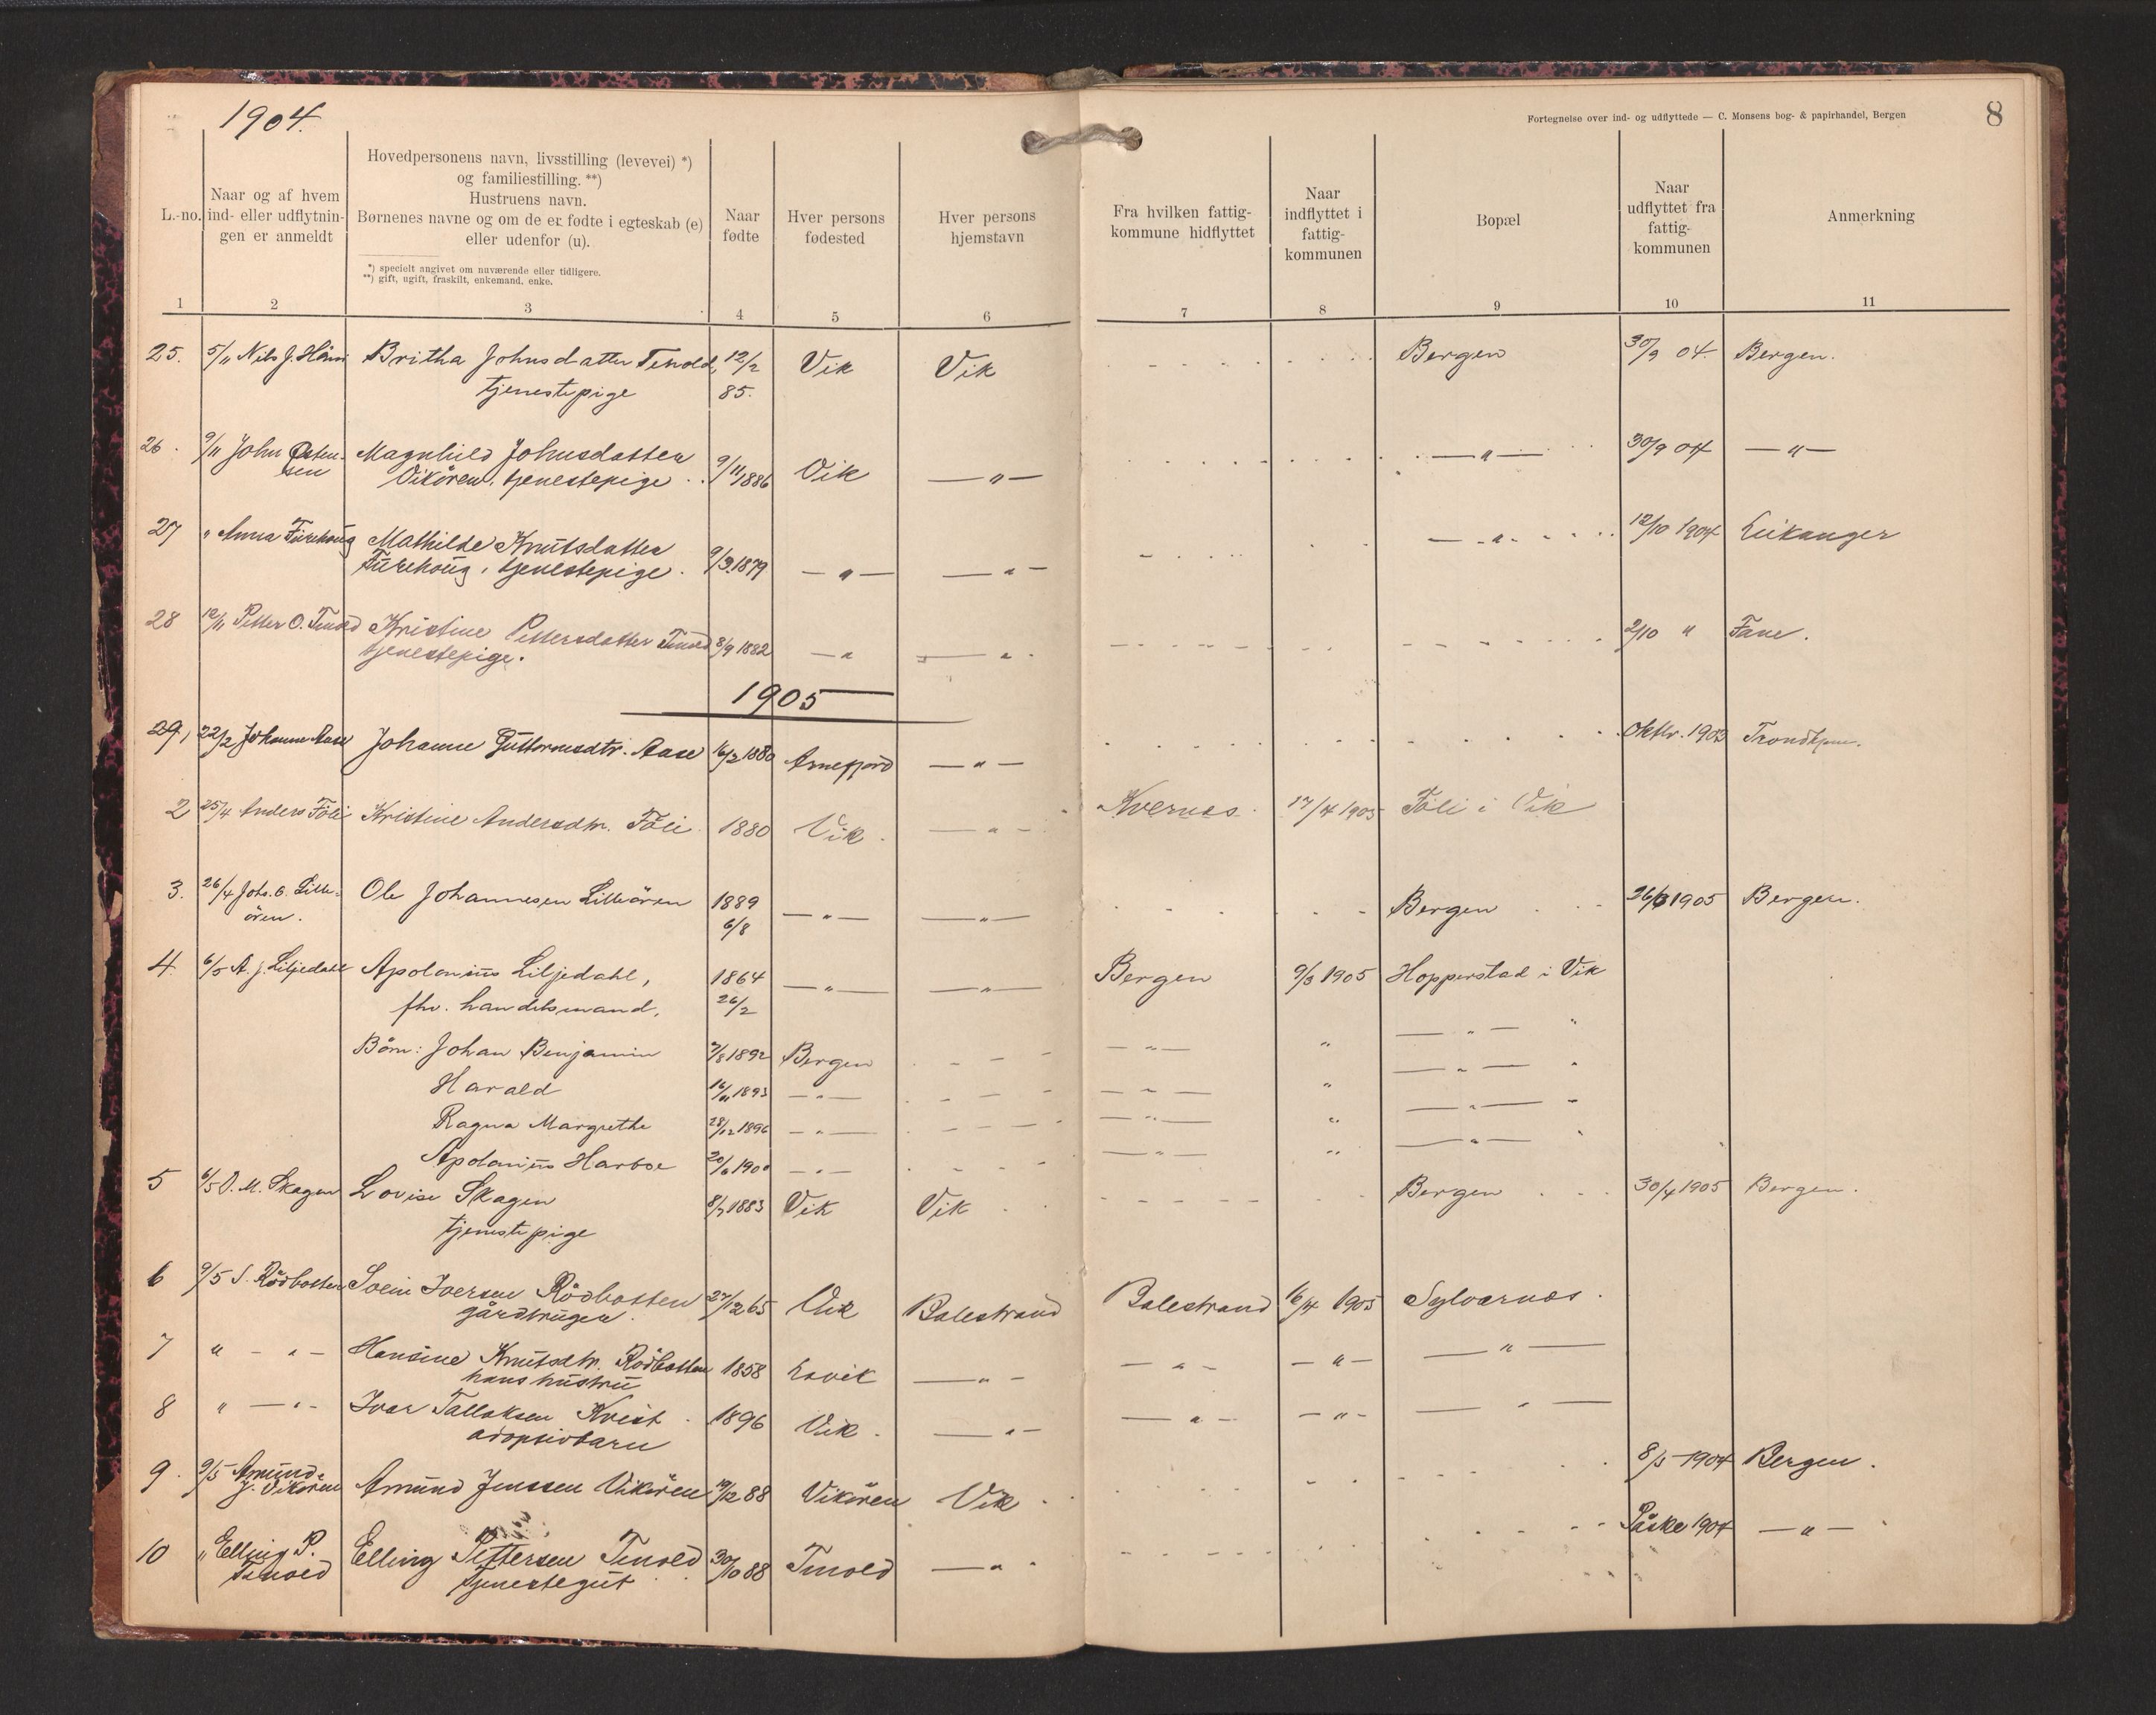 1904.
Fortegnelse over ind- og udflyttede — C. Monsens bog- & papirhandel, Bergen
8
L.-no.
Naar og af hvem
ind- eller udflytnin-
gen er anmeldt
Hovedpersonens navn, livsstilling (levevei) *)
og familiestilling. **)
Hustruens navn.
Børnenes navne og om de er fødte i egteskab (e)
eller udenfor (u).
*) specielt angivet om nuværende eller tidligere.
**) gift, ugift, fraskilt, enkemand, enke.
Naar
fødte
Hver persons
fødested
Hver persons
hjemstavn
Fra hvilken fattig-
kommune hidflyttet
Naar
indflyttet i
fattig-
kommunen
Bopæl
Naar
udflyttet fra
fattig-
kommunen
Anmerkning
1 2 3 4 5 6 7 8 9 10 11
25. 5/11 Nils J. Britha Johnsdatter Tenold, 12/2 Vik Vik Bergen 30/9 04. Bergen.
tjenestepige 85.
26. 9/11 John Østen- Magnhild Johnsdatter 9/11 1886 Vik —"— —"— 30/9 04 —"—
sen Vikören, tjenestepige
27 " Anna Turehoug Mathilde Knutsdatter —"— 12/10 1904 Leikanger
Turehoug, tjenestepige. 9/3 1879 —"— —"—
28 12/11 Petter O. Tenold Kristine Pettersdatter Tenold 8/9 1882 —"— —"— 2/10 " Fane.
tjenestepige.
1905
29, 22/2 Johanne Aase Johanne Guttormsdtr. Aase 16/2 1880 Arnefjord —"— Oktbr. 1903 Trondhjem.
2 25/4 Anders Föli Kristine Andersdtr. Föli 1880 Vik. —"— Kvernes 17/4 1905 Föli i Vik
3. 26/4 Johs. O. Lille- Ole Johannesen Lilleören 1889 —"— —"— Bergen 26/3 1905 Bergen.
ören. 6/8
4. 6/5 A. J. Liljedahl Apolonius Liljedahl, 1864 —"— —"— Bergen 9/3 1905 Hopperstad i Vik
fhv. handelsmand, 26/2
Börn: Johan Benjamin 7/8 1892 Bergen —"— " —"—
Harald 16/11 1893 —"— —"— " —"—
Ragna Margrethe 28/12 1896 —"— —"— " —"—
Apolonius Harboe 20/6 1900 —"— —"— " —"—
5 6/5 O. M. Skagen Lovise Skagen 8/7 1883 Vik Vik Bergen 30/4 1905 Bergen.
tjenestepige
6 9/5 S. Rödbotten Svein Iversen Rödbotten 27/12 65 Vik Balestrand Balestrand 16/4 1905 Sylvarnes.
gårdbruger.
7 " - " - Hansine Knutsdtr. Rödbotten 1858 Lavik —"— —"— —"— —"—
hans hustru
8 " —"— Ivar Tallaksen Kvist 1896 Vik. —"— —"— —"— —"—
adoptivbarn
9. 9/5 Amund Amund Jenssen Vikören 19/12 88 Vikören Vik 8/5 1904 Bergen.
J. Vikören
10 " Elling P. Elling Pettersen Tenold 30/10 88 Tenold —"— Påske 1904 —"—
Tenold tjenestegut